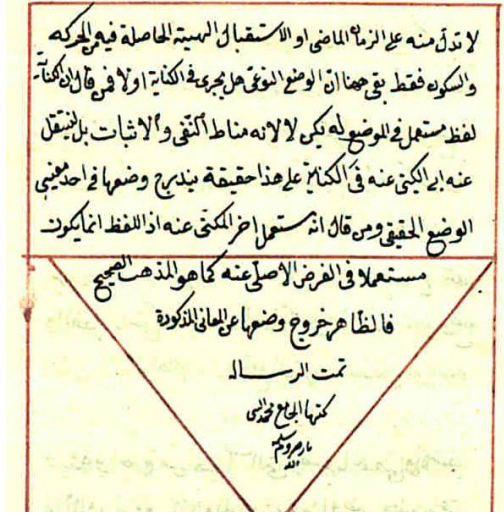 لا تدل منه على الزمان الماضى او الاستقبال الهيئة الحاصلة فيه من الحركه
والسكون فقط بقى ههنا ان الوضع النوعى هل يجرى فى الكناية اولا فمن قال ان الكناية
لفظ مستعمل فى الموضوع له لكن لا لانه مناط النفى والاثبات بل لينتقل
عنه الى المكنى عنه فى الكناية على هذا حقيقة يندرج وضعها فى احد معنيى
الوضع الحقيقى ومن قال انه مستعمل اخر المكنى عنه اذ اللفظ انما يكون
مستعملا فى الغرض الاصلى عنه كما هو المذهب الصحيح
فالظاهر خروج وضعها عن المعانى المذكورة
تمت الرساله
كتبها الجامع محمد